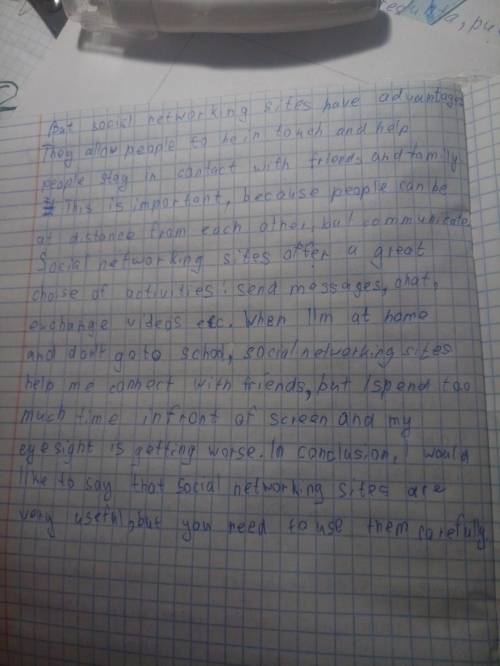 But social networking sites have advantages
They allow people to be in touch and help
people stay in contact with friends and family.
This is important, because people can be
at distance from each other, but communicate.
Social networking sites offer a great
choise of activities: send messages, chat,
exchange videos etc. When I'm at home
and don't go to school, social networking sites
help me connect with friends, but I spend too
much time infront of screen and my
eyesight is getting worse. In conclusion, I would
like to say that social networking sites are
very useful, but you need to use them carefully.